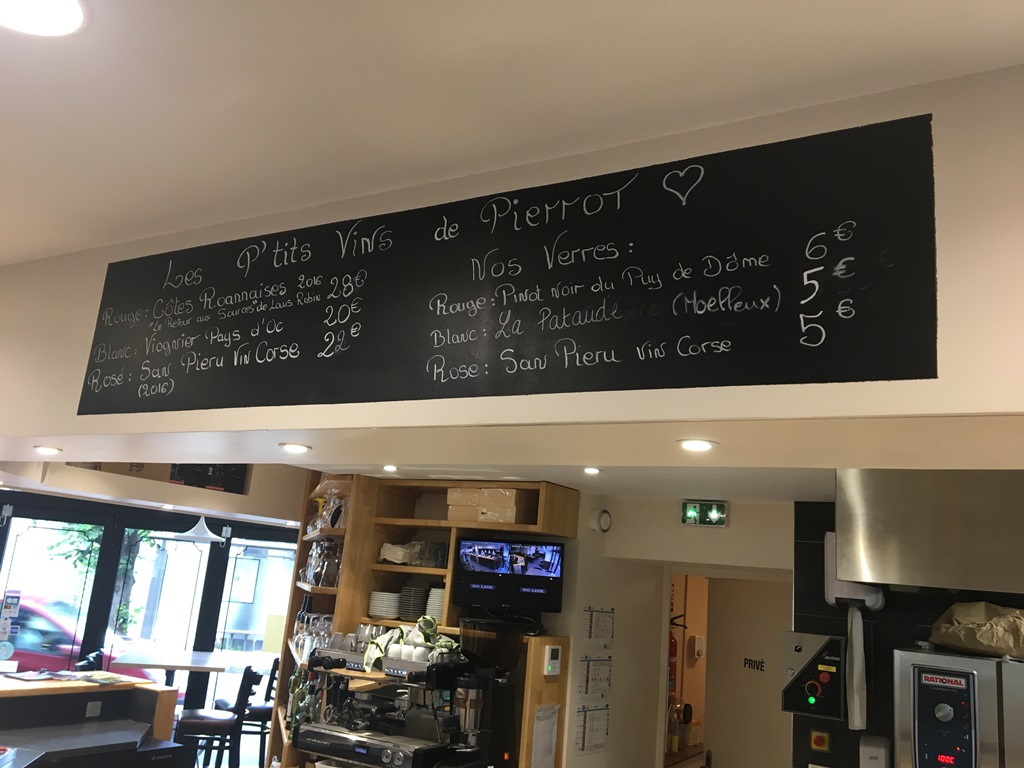 Les P'tits Vins de Pierrot
Rouge: Côtes Roannaises 2016 28€
"Le Retour aux Sources" de Louis Robin
Blanc: Viognier Pays d'Oc 20€
Rosé: San Pieru Vin Corse 22€
(2016)
Nos Verres:
Rouge: Pinot Noir du Puy de Dôme 6€
Blanc: La Pataude (Moelleux) 5€
Rose: San Pieru Vin Corse 5€
NO LINK
NO LINK
PRIVÉ
RATIONAL
100C